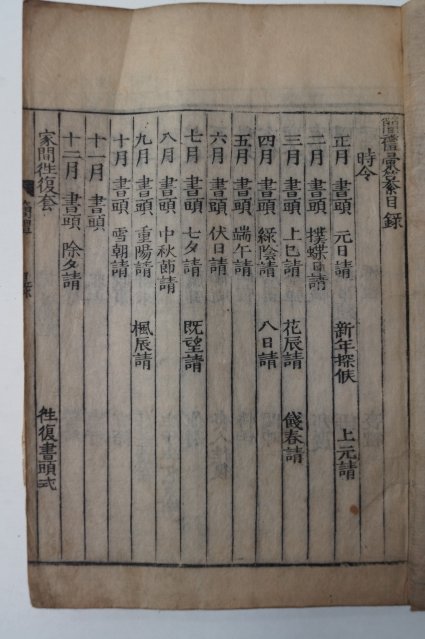 簡禮彙纂目錄
時令
正月 書頭 元日請 新年探候 上元請
二月 書頭 撲蝶日請
三月 書頭 上巳請 花辰請 餞春請
四月 書頭 綠陰請 八日請
五月 書頭 端午請
六月 書頭 伏日請
七月 書頭 七夕請 既望請
八月 書頭 中秋節請
九月 書頭 重陽請 楓辰請
十月 書頭 雪朝請
十一月 書頭
十二月 書頭 除夕請
家間徃復套 徃復書頭式